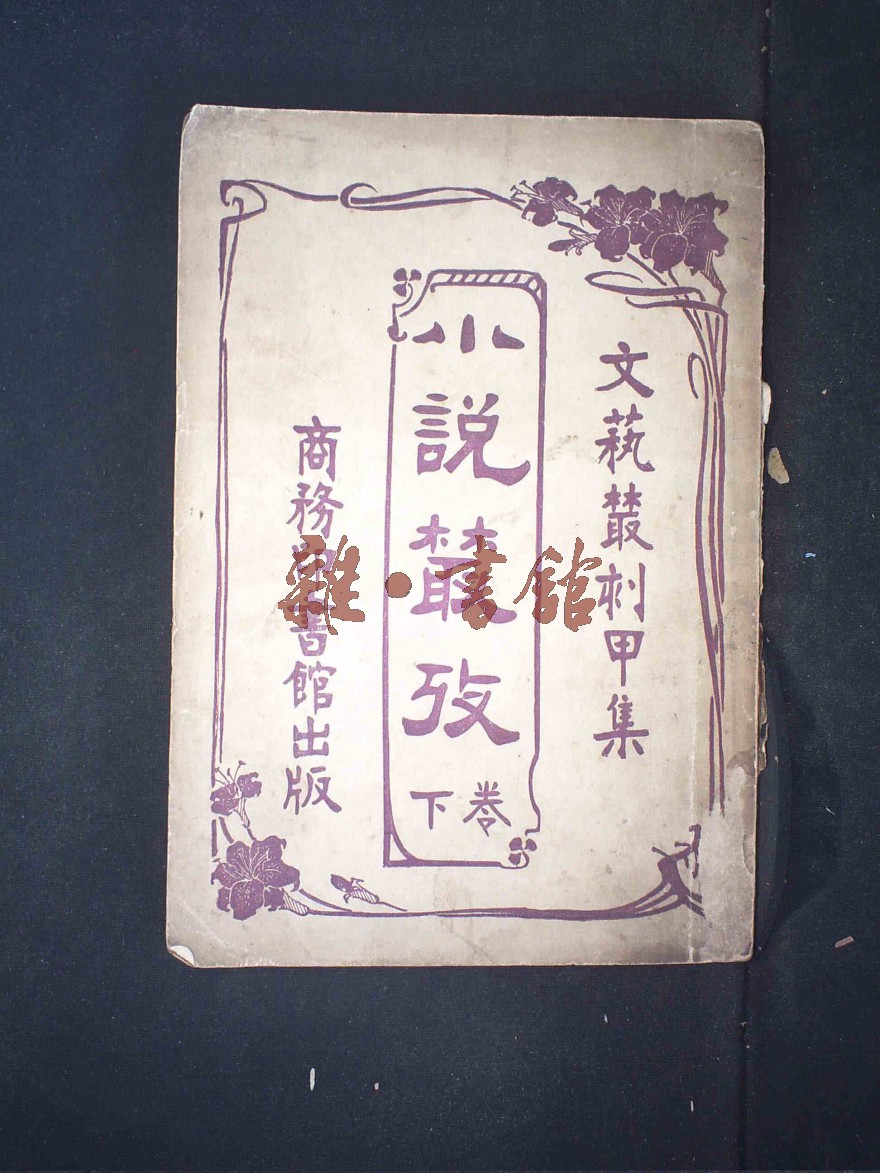 文藝叢刻甲集
小説叢攷
卷下
商務印書館出版
雜·書館